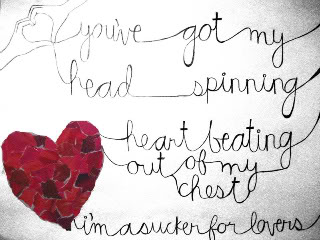 you've got my
head spinning
heart beating
out of my
chest
i'm a sucker for lovers